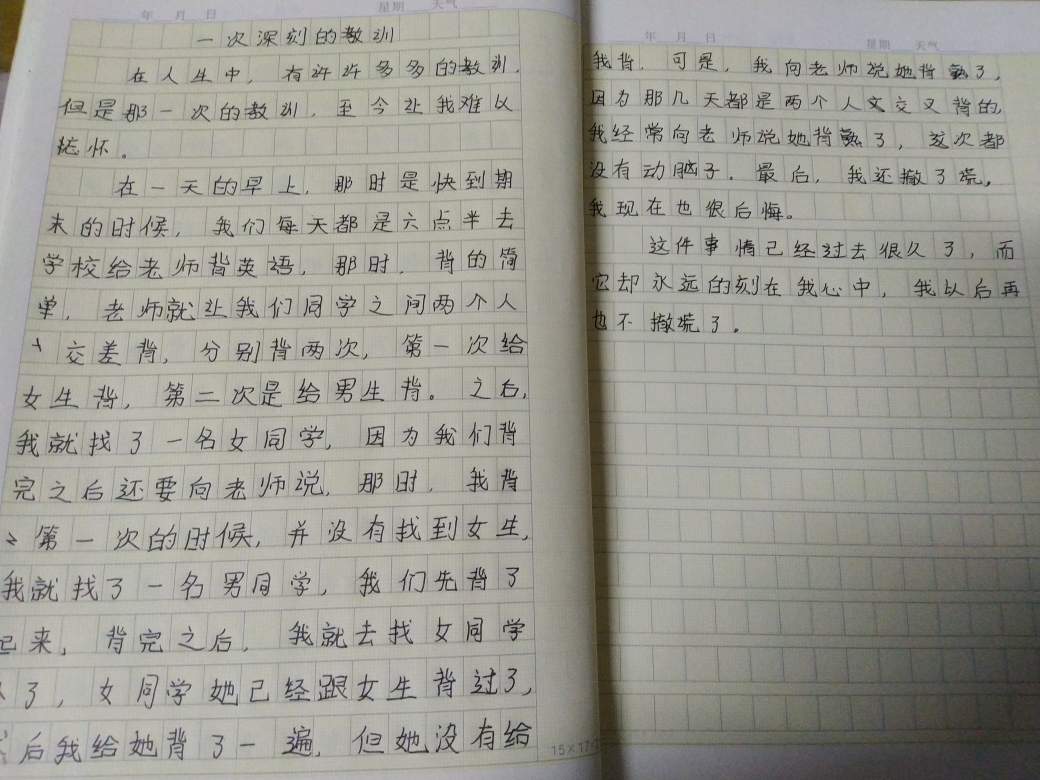 年 月 日 星期 天气
一次深刻的教训
在人生中，有许许多多的教训，
但是那一次的教训，至今让我难以
忘怀。
在一天的早上，那时是快到期
末的时候，我们每天都是六点半去
学校给老师背英语，那时，背的简
单，老师就让我们同学之间两个人
交差背，分别背两次，第一次给
女生背，第二次是给男生背。之后，
我就找了一名女同学，因为我们背
完之后还要向老师说，那时，我背
第一次的时候，并没有找到女生，
我就找了一名男同学，我们先背了
起来，背完之后，我就去找女同学
了，女同学她已经跟女生背过了，
后我给她背了一遍，但她没有给
15×17
年 月 日 星期 天气
我背，可是，我向老师说她背熟了，
因为那几天都是两个人交叉背的，
我经常向老师说她背熟了，这次都
没有动脑子。最后，我还撒了谎，
我现在也很后悔。
这件事情已经过去很久了，而
它却永远的刻在我心中，我以后再
也不撒谎了。